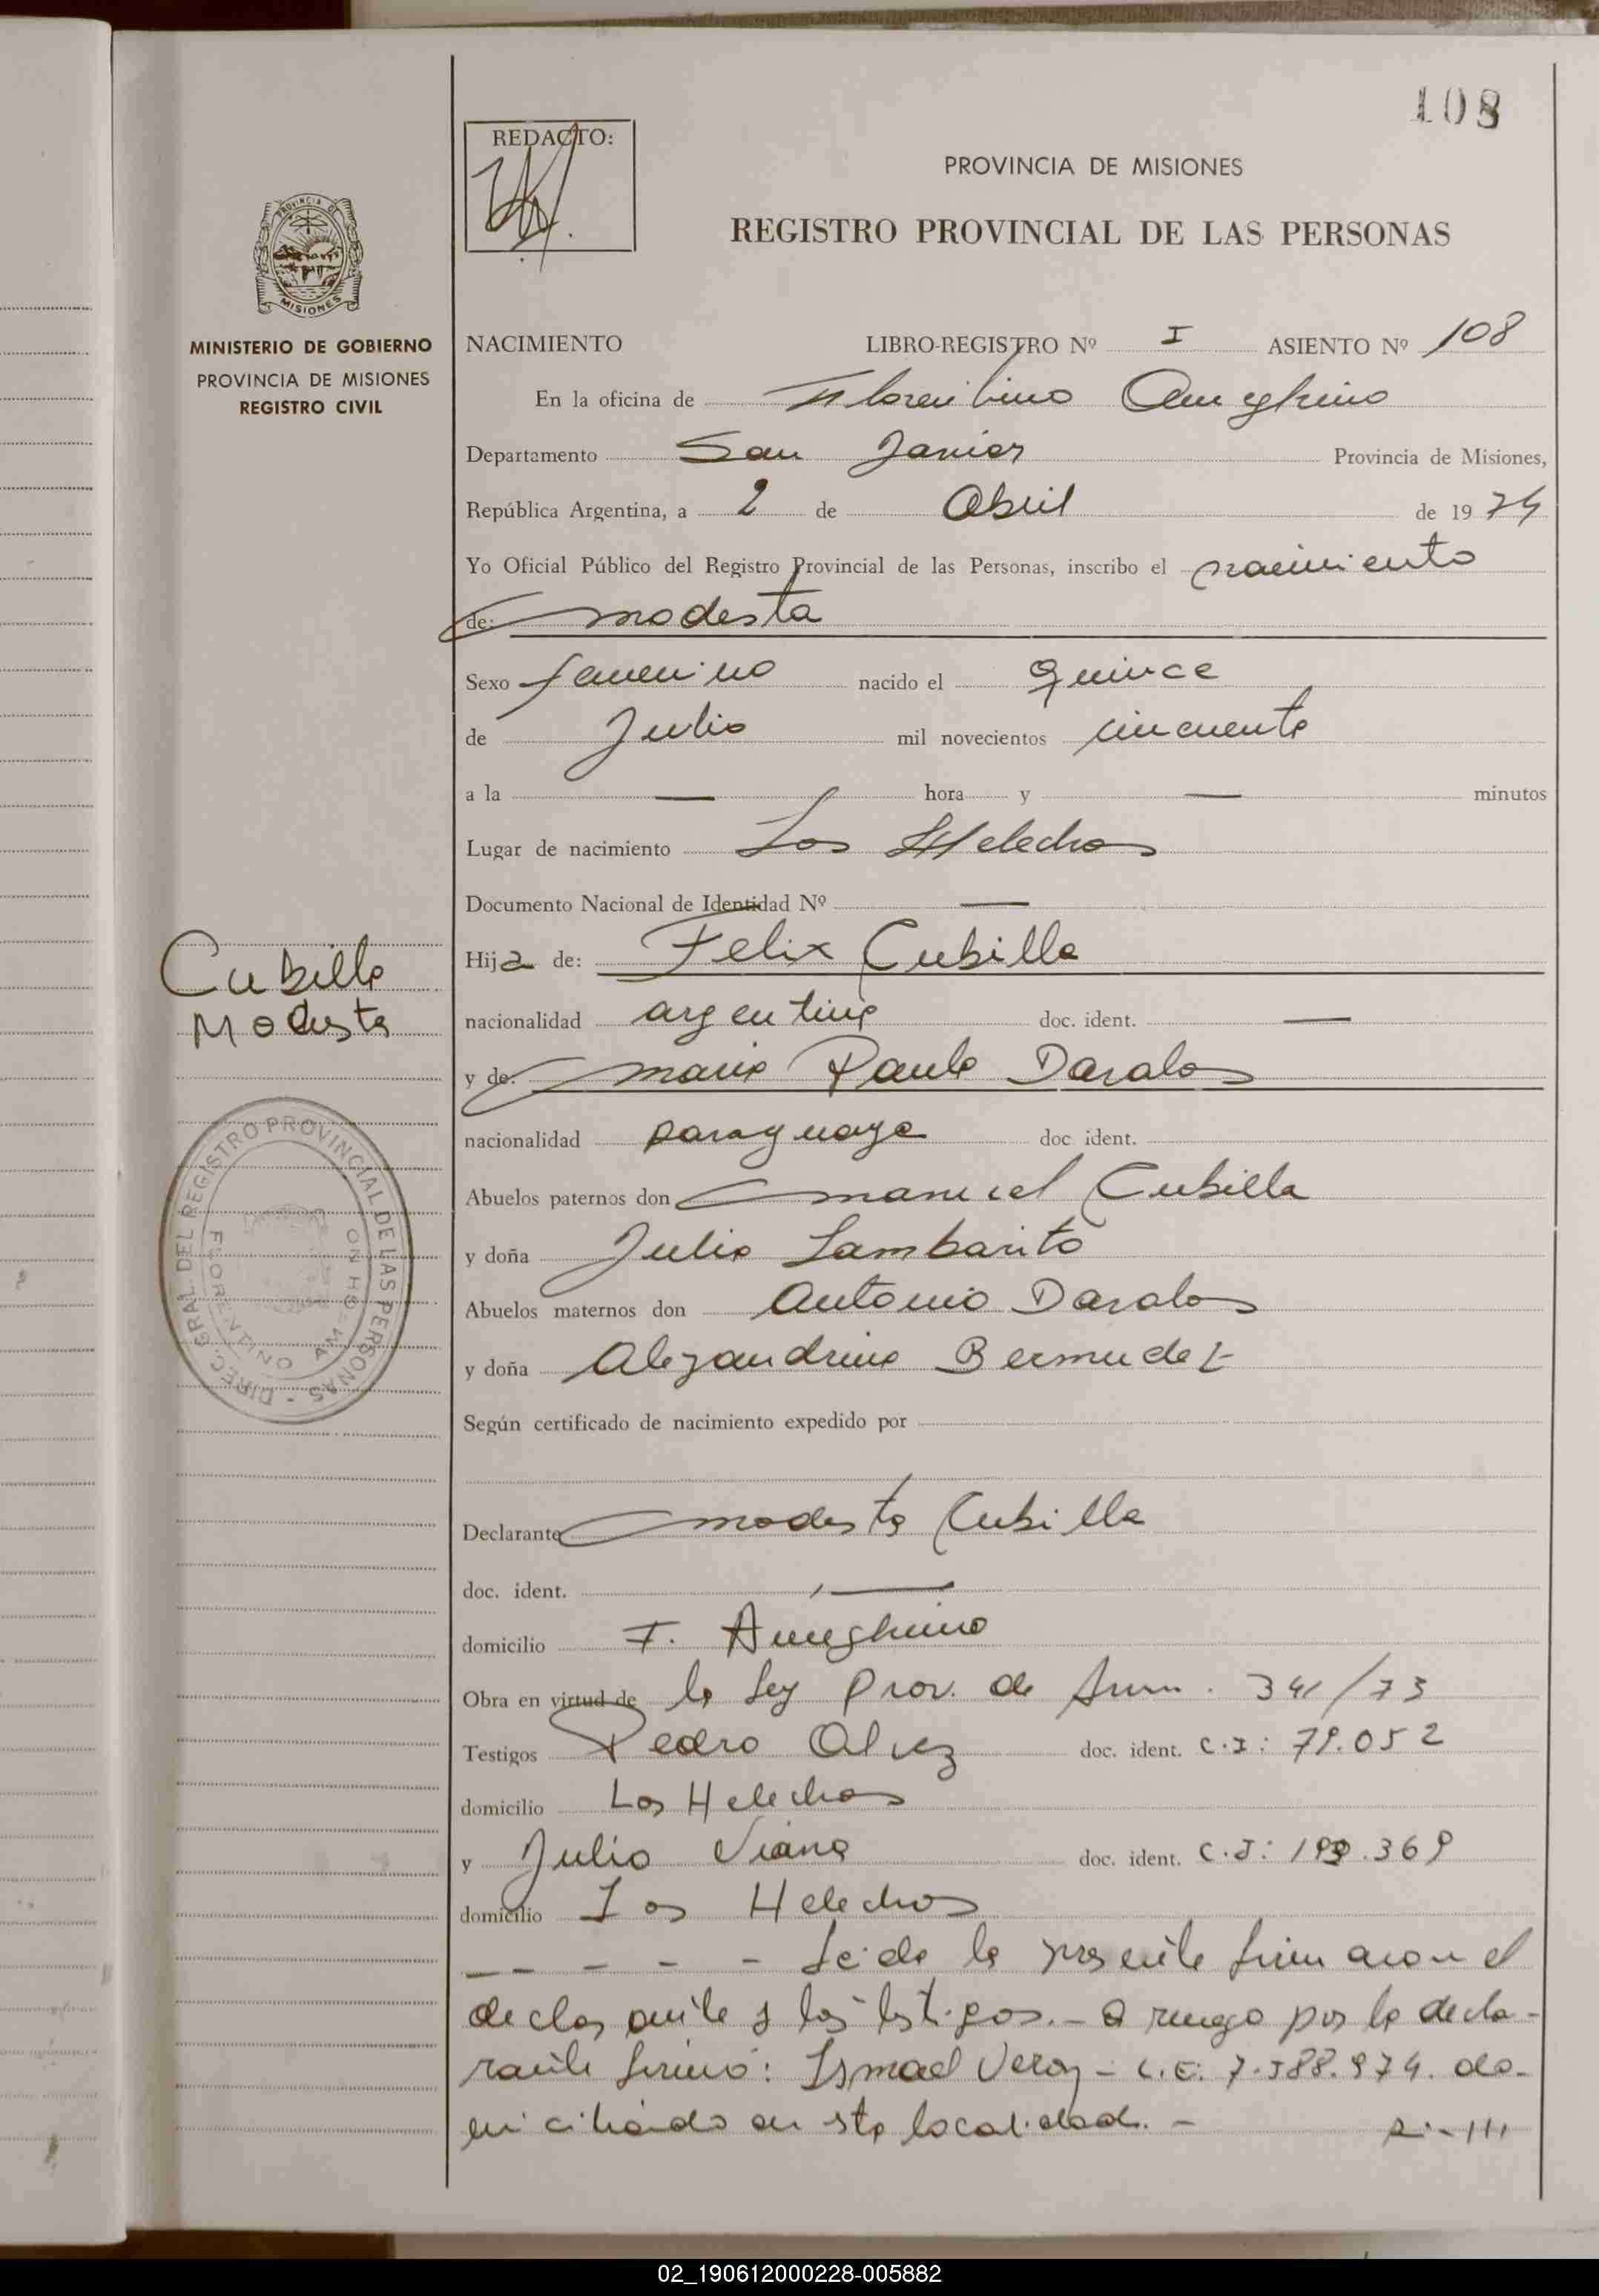 108
REDACTO:
PROVINCIA DE MISIONES
REGISTRO PROVINCIAL DE LAS PERSONAS
PROVINCIA DE
MISIONES
MINISTERIO DE GOBIERNO
PROVINCIA DE MISIONES
REGISTRO CIVIL
NACIMIENTO LIBRO-REGISTRO Nº I ASIENTO Nº 108
En la oficina de Florentino Ameghino
Departamento San Javier Provincia de Misiones,
República Argentina, a 2 de Abril de 1974
Yo Oficial Público del Registro Provincial de las Personas, inscribo el nacimiento
de: Modesta
Sexo femenino nacido el Quince
de Julio mil novecientos cincuenta
a la — hora y — minutos
Lugar de nacimiento Los Helechos
Documento Nacional de Identidad Nº —
Hija de: Felix Cubilla
Cubilla
Modesta
nacionalidad argentina doc. ident. —
y de: Maria Paula Davalos
nacionalidad paraguaya doc ident.
Abuelos paternos don Manuel Cubilla
y doña Julia Lambarito
Abuelos maternos don Antonio Davalos
y doña Alejandrina Bermudez
DIREC. GRAL DEL REGISTRO PROVINCIAL DE LAS PERSONAS
FLORENTINO AMEGHINO
Según certificado de nacimiento expedido por
Declarante Modesta Cubilla
doc. ident. —
domicilio F. Ameghino
Obra en virtud de la Ley Prov. de Amn. 341/73
Testigos Pedro Alvez doc. ident. C.I: 79.052
domicilio Los Helechos
y Julio Viana doc. ident. C.I: .369
domicilio Los Helechos
— — — — — Leida la presente firmaron el
declarante y los testigos.- A ruego por la decla-
rante firmó: Ismael Veron - L.E: 7.588.974. do-
miciliado en sta localidad. -
02_190612000228-005882